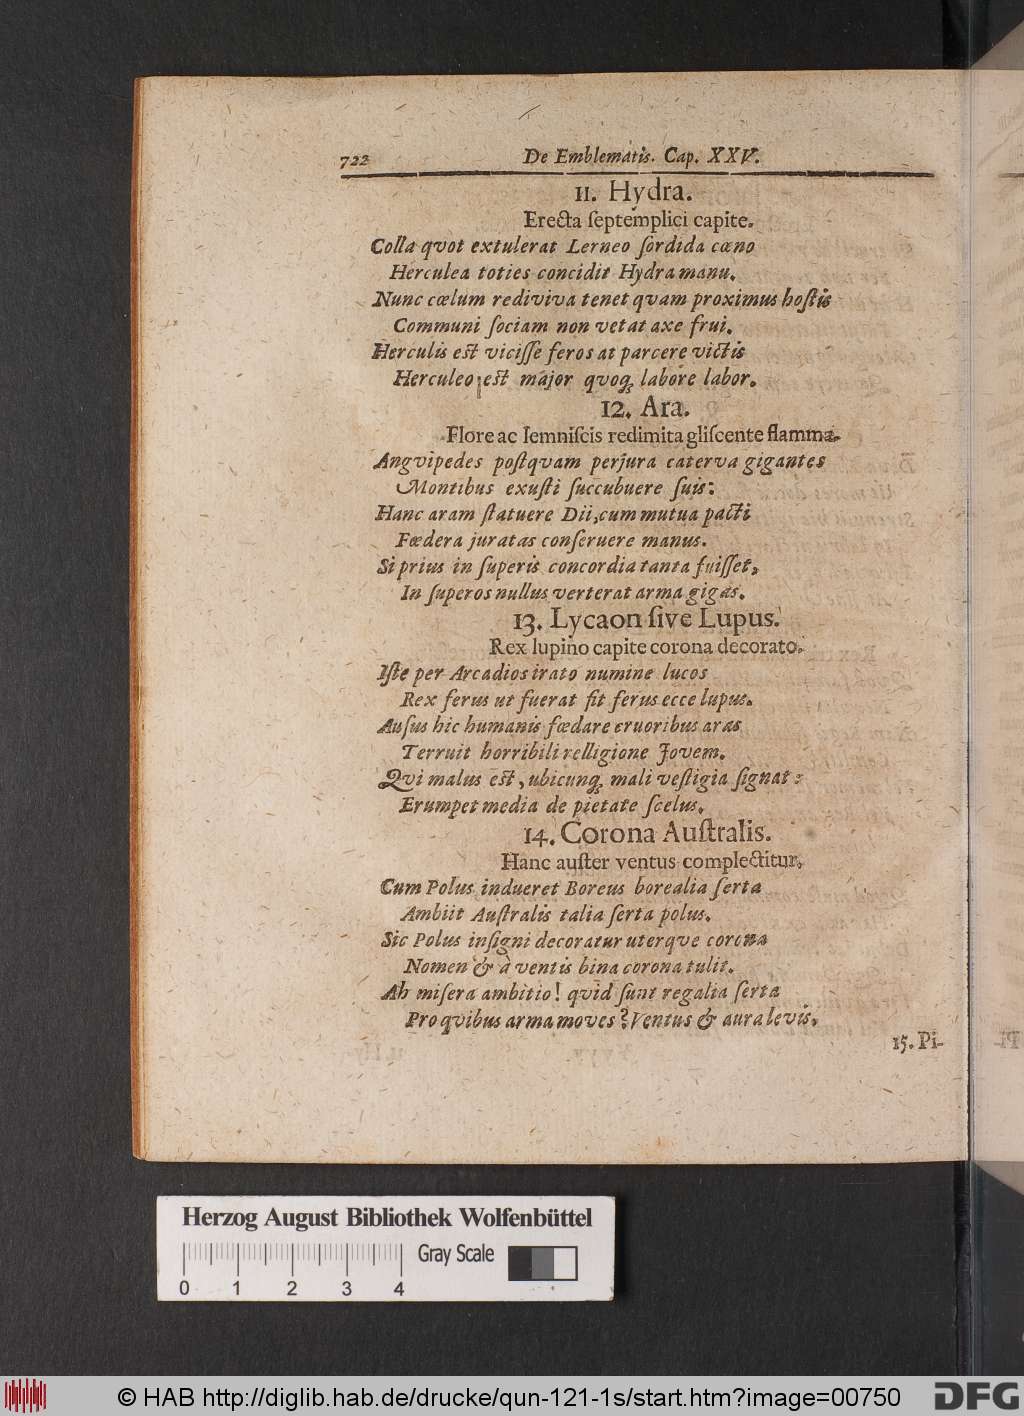 722 De Emblematis. Cap. XXV.
11. Hydra.
Erecta ſeptemplici capite.
Colla qvot extulerat Lerneo ſordida cœno
Herculea toties concidit Hydra manu.
Nunc cœlum rediviva tenet qvam proximus hoſtis
Communi ſociam non vetat axe frui.
Herculis est viciſſe feros at parcere victis
Herculeo est major qvoq; labore labor.
12. Ara.
Flore ac lemniſcis redimita gliſcente flamma.
Angvipedes poſtqvam perjura caterva gigantes
Montibus exuſti ſuccubuere ſuis:
Hanc aram ſtatuere Dii, cum mutua pacti
Fœdera juratas conſeruere manus.
Si prius in ſuperis concordia tanta fuiſſet,
In ſuperos nullus verterat arma gigas.
13. Lycaon ſive Lupus.
Rex lupino capite corona decorato.
Iſte per Arcadios irato numine lucos
Rex ferus ut fuerat fit ferus ecce lupus.
Auſus hic humanis fœdare cruoribus aras
Terruit horribili relligione Jovem.
Qvi malus est, ubicunq; mali veſtigia ſignat:
Erumpet media de pietate ſcelus.
14. Corona Auſtralis.
Hanc auſter ventus complectitur.
Cum Polus indueret Boreus borealia ſerta
Ambiit Auſtralis talia ſerta polus.
Sic Polus inſigni decoratur uterqve corona
Nomen & à ventis bina corona tulit.
Ah miſera ambitio! qvid ſunt regalia ſerta
Pro qvibus arma moves? Ventus & aura levis.
15. Pi-
Herzog August Bibliothek Wolfenbüttel
Gray Scale
0 1 2 3 4
© HAB http://diglib.hab.de/drucke/qun-121-1s/start.htm?image=00750
DFG